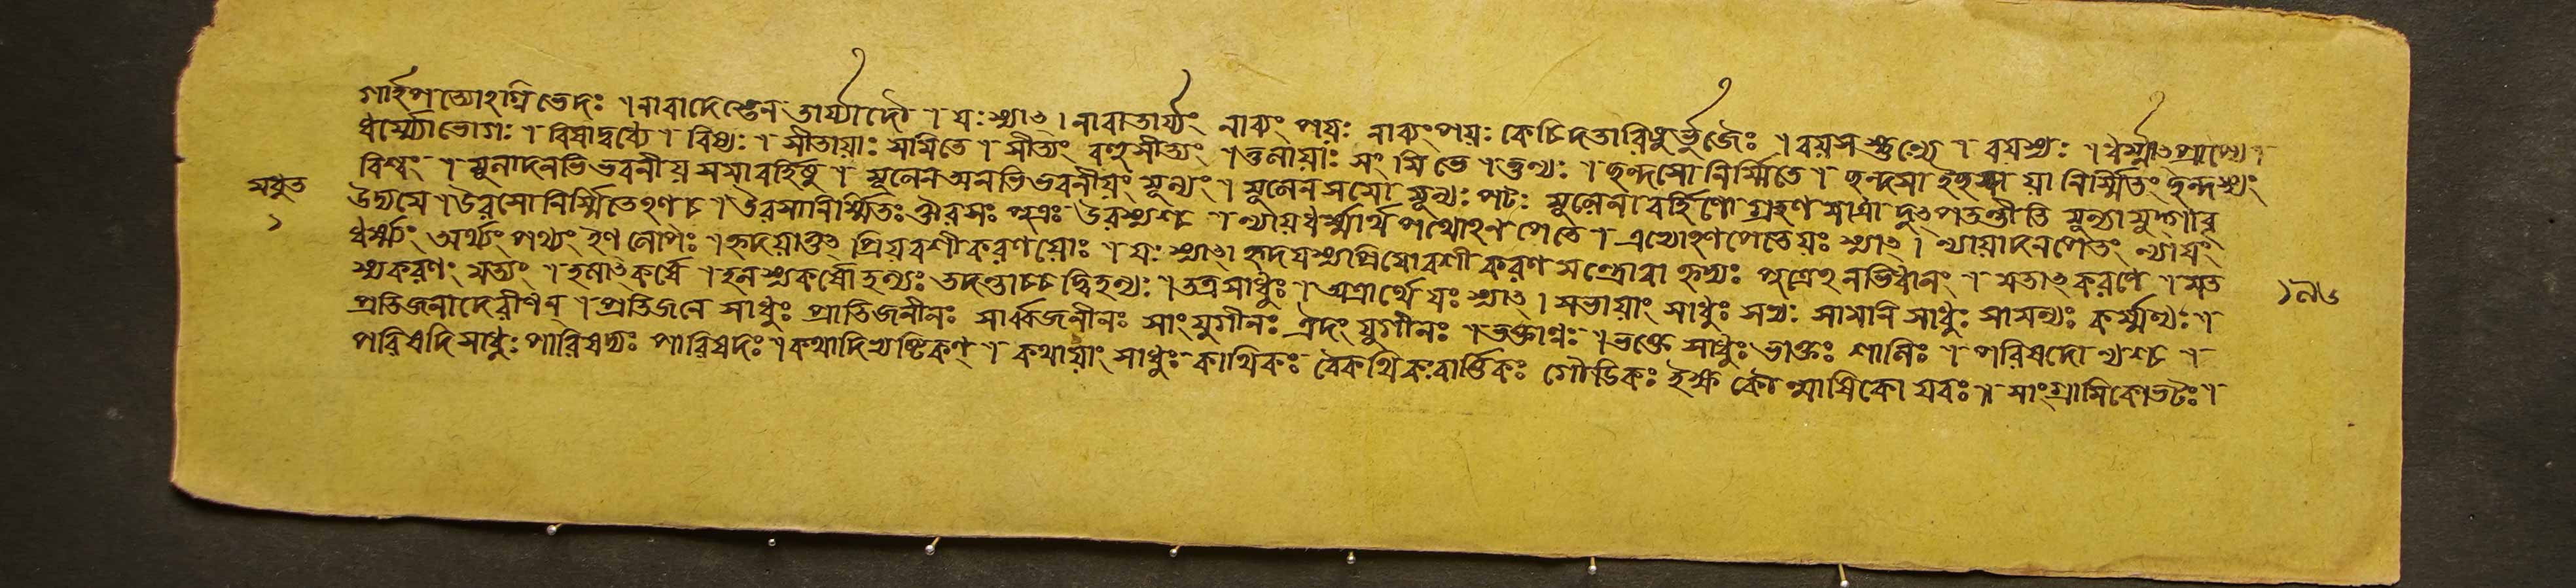 গার্হপত্যোঽগ্নিভেদঃ । নাবাদেস্তেন তার্য্যাদৌ । যঃ স্যাৎ । নাবাতার্য্যং নাব্যং পয়ঃ নাব্যংপয়ঃ কেচিদতারিধুর্ভুজৈঃ । বয়সস্তুল্যে । বয়স্যঃ । ধর্ম্মাৎপ্রাপ্যে ।
ধর্ম্ম্যোভোগঃ । বিষাদ্বধ্যে । বিষ্যঃ । সীতায়াঃ সমিতে । সীত্যং বহুসীত্যং । তুলায়াঃ সংমিতে । তুল্যঃ । ছন্দসো নির্ম্মিতে । ছন্দসা ইচ্ছয়া নির্ম্মিতং ছন্দস্যং
বিশ্বং । মূলাদনভিভবনীয় সমাবর্হিষু । মূলেন অনভিভবনীয়ং মূল্যং । মূলেন সমো মূল্যঃ পটঃ মূলেনাবর্হিণো গ্রহণমাত্রাদুৎপতন্তীতি মূল্যামুদ্গাবৃ
উদ্যমে । উরসো নির্ম্মিতেঽণ চ । উরসানির্ম্মিতঃ ঔরসঃ পুত্রঃ উরস্যশ্চ । ন্যায়ধর্ম্মার্থপথোঽনপেতে । এভ্যোঽনপেতেয়ঃ স্যাৎ । ন্যায়াদনপেতং ন্যায্যং
ধর্ম্ম্যং অর্থ্যং পথ্যং ইণ লোপঃ । হৃদয়াত্তু প্রিয়বশীকরণয়োঃ । যঃ স্যাৎ । হৃদয়স্যপ্রিয়োবশীকরণ মন্ত্রোবা হৃদ্যঃ পুত্রেঽনভিধানং । মতাৎকরণে । মত
স্যকরণং মত্যং । হলাৎকর্ষে । হলস্যকর্ষো হল্যঃ তদন্তাচ্চ দ্বিহল্যঃ । তত্রসাধুঃ । অত্রার্থে যঃ স্যাৎ । সভায়াং সাধুঃ সভ্যঃ সামনি সাধুঃ সামন্যঃ কর্ম্মণ্যঃ ।
প্রতিজনাদেরীণন্ । প্রতিজনে সাধুঃ প্রাতিজনীনঃ সার্ব্বজনীনঃ সাংযুগীনঃ ঐদংযুগীনঃ । ভক্তান্নঃ । ভক্তে সাধুঃ ভাক্তঃ শালিঃ । পরিষদো ণ্যশ্চ ।
পরিষদিসাধুঃ পারিষদ্যঃ পারিষদঃ । কথাদিভ্যষ্টিকণ্ । কথায়াং সাধুঃ কাথিকঃ বৈকথিকঃবার্ত্তিকঃ গৌডিকঃ ইক্ষু কৌল্মাষিকো যবঃ । সাংগ্রামিকোভটঃ ।
১৯৬